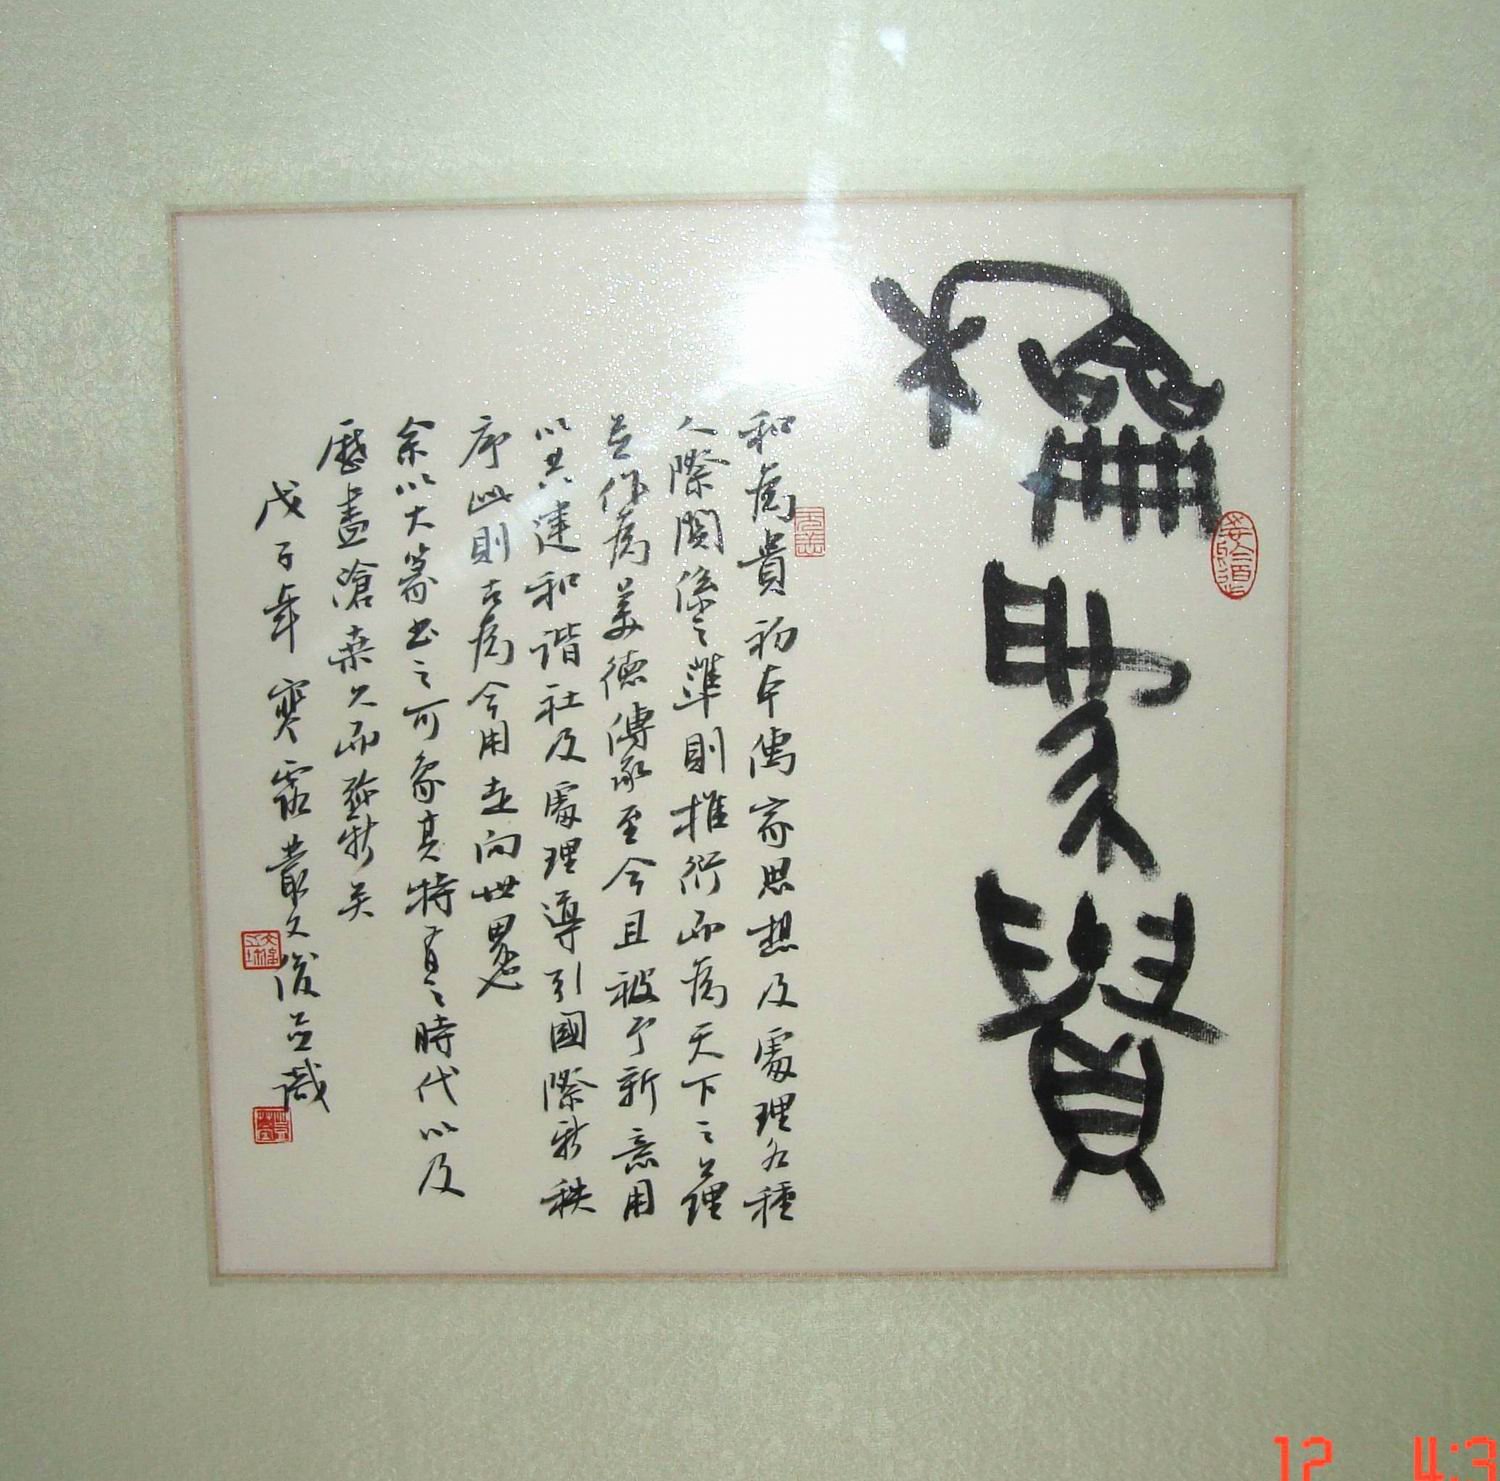 龢為貴
和為貴初本儒家思想及處理各種
人際關係之準則推衍而為天下之公理
並作為美德傳承至今且被予新意用
以共建和谐社及處理導引國際新秩
序此則古為今用走向世界也
余以大篆书之可象其特有之時代以及
歷盡滄桑久而弥新矣
戊子年寒露叢文俊並識
12 4:3